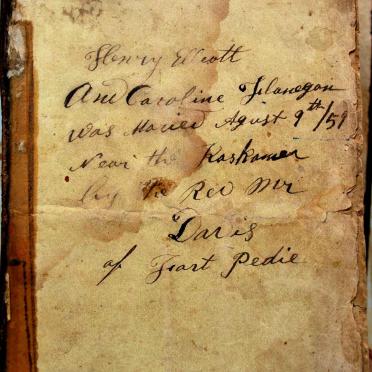 Henry Elcott
And Caroline Flanegan
was Maried Agust 9th/59
Near the Kaskamer
by the Rev Mr
Davis
of Foart Pedie